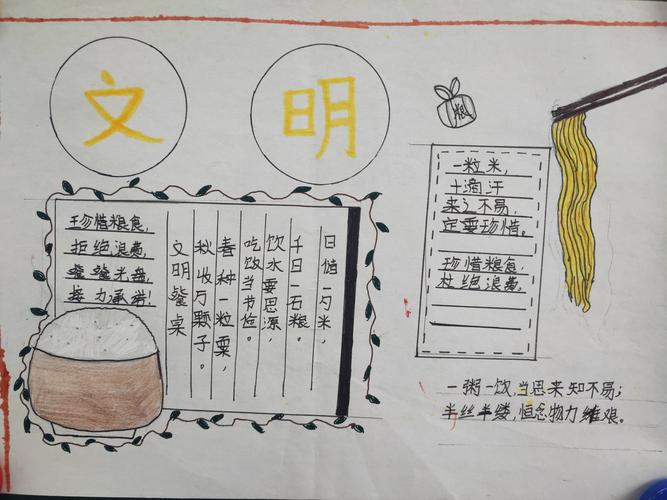 文明
粮
珍惜粮食,
拒绝浪费,
餐餐光盘,
接力承诺!
日储一勺米,
千日一石粮。
饮水要思源,
吃饭当节俭。
春种一粒粟,
秋收万颗子。
文明餐桌
一粒米,
十滴汗
来之不易,
定要珍惜。
珍惜粮食,
杜绝浪费。
一粥一饮,当思来知不易;
半丝半缕,恒念物力维艰。